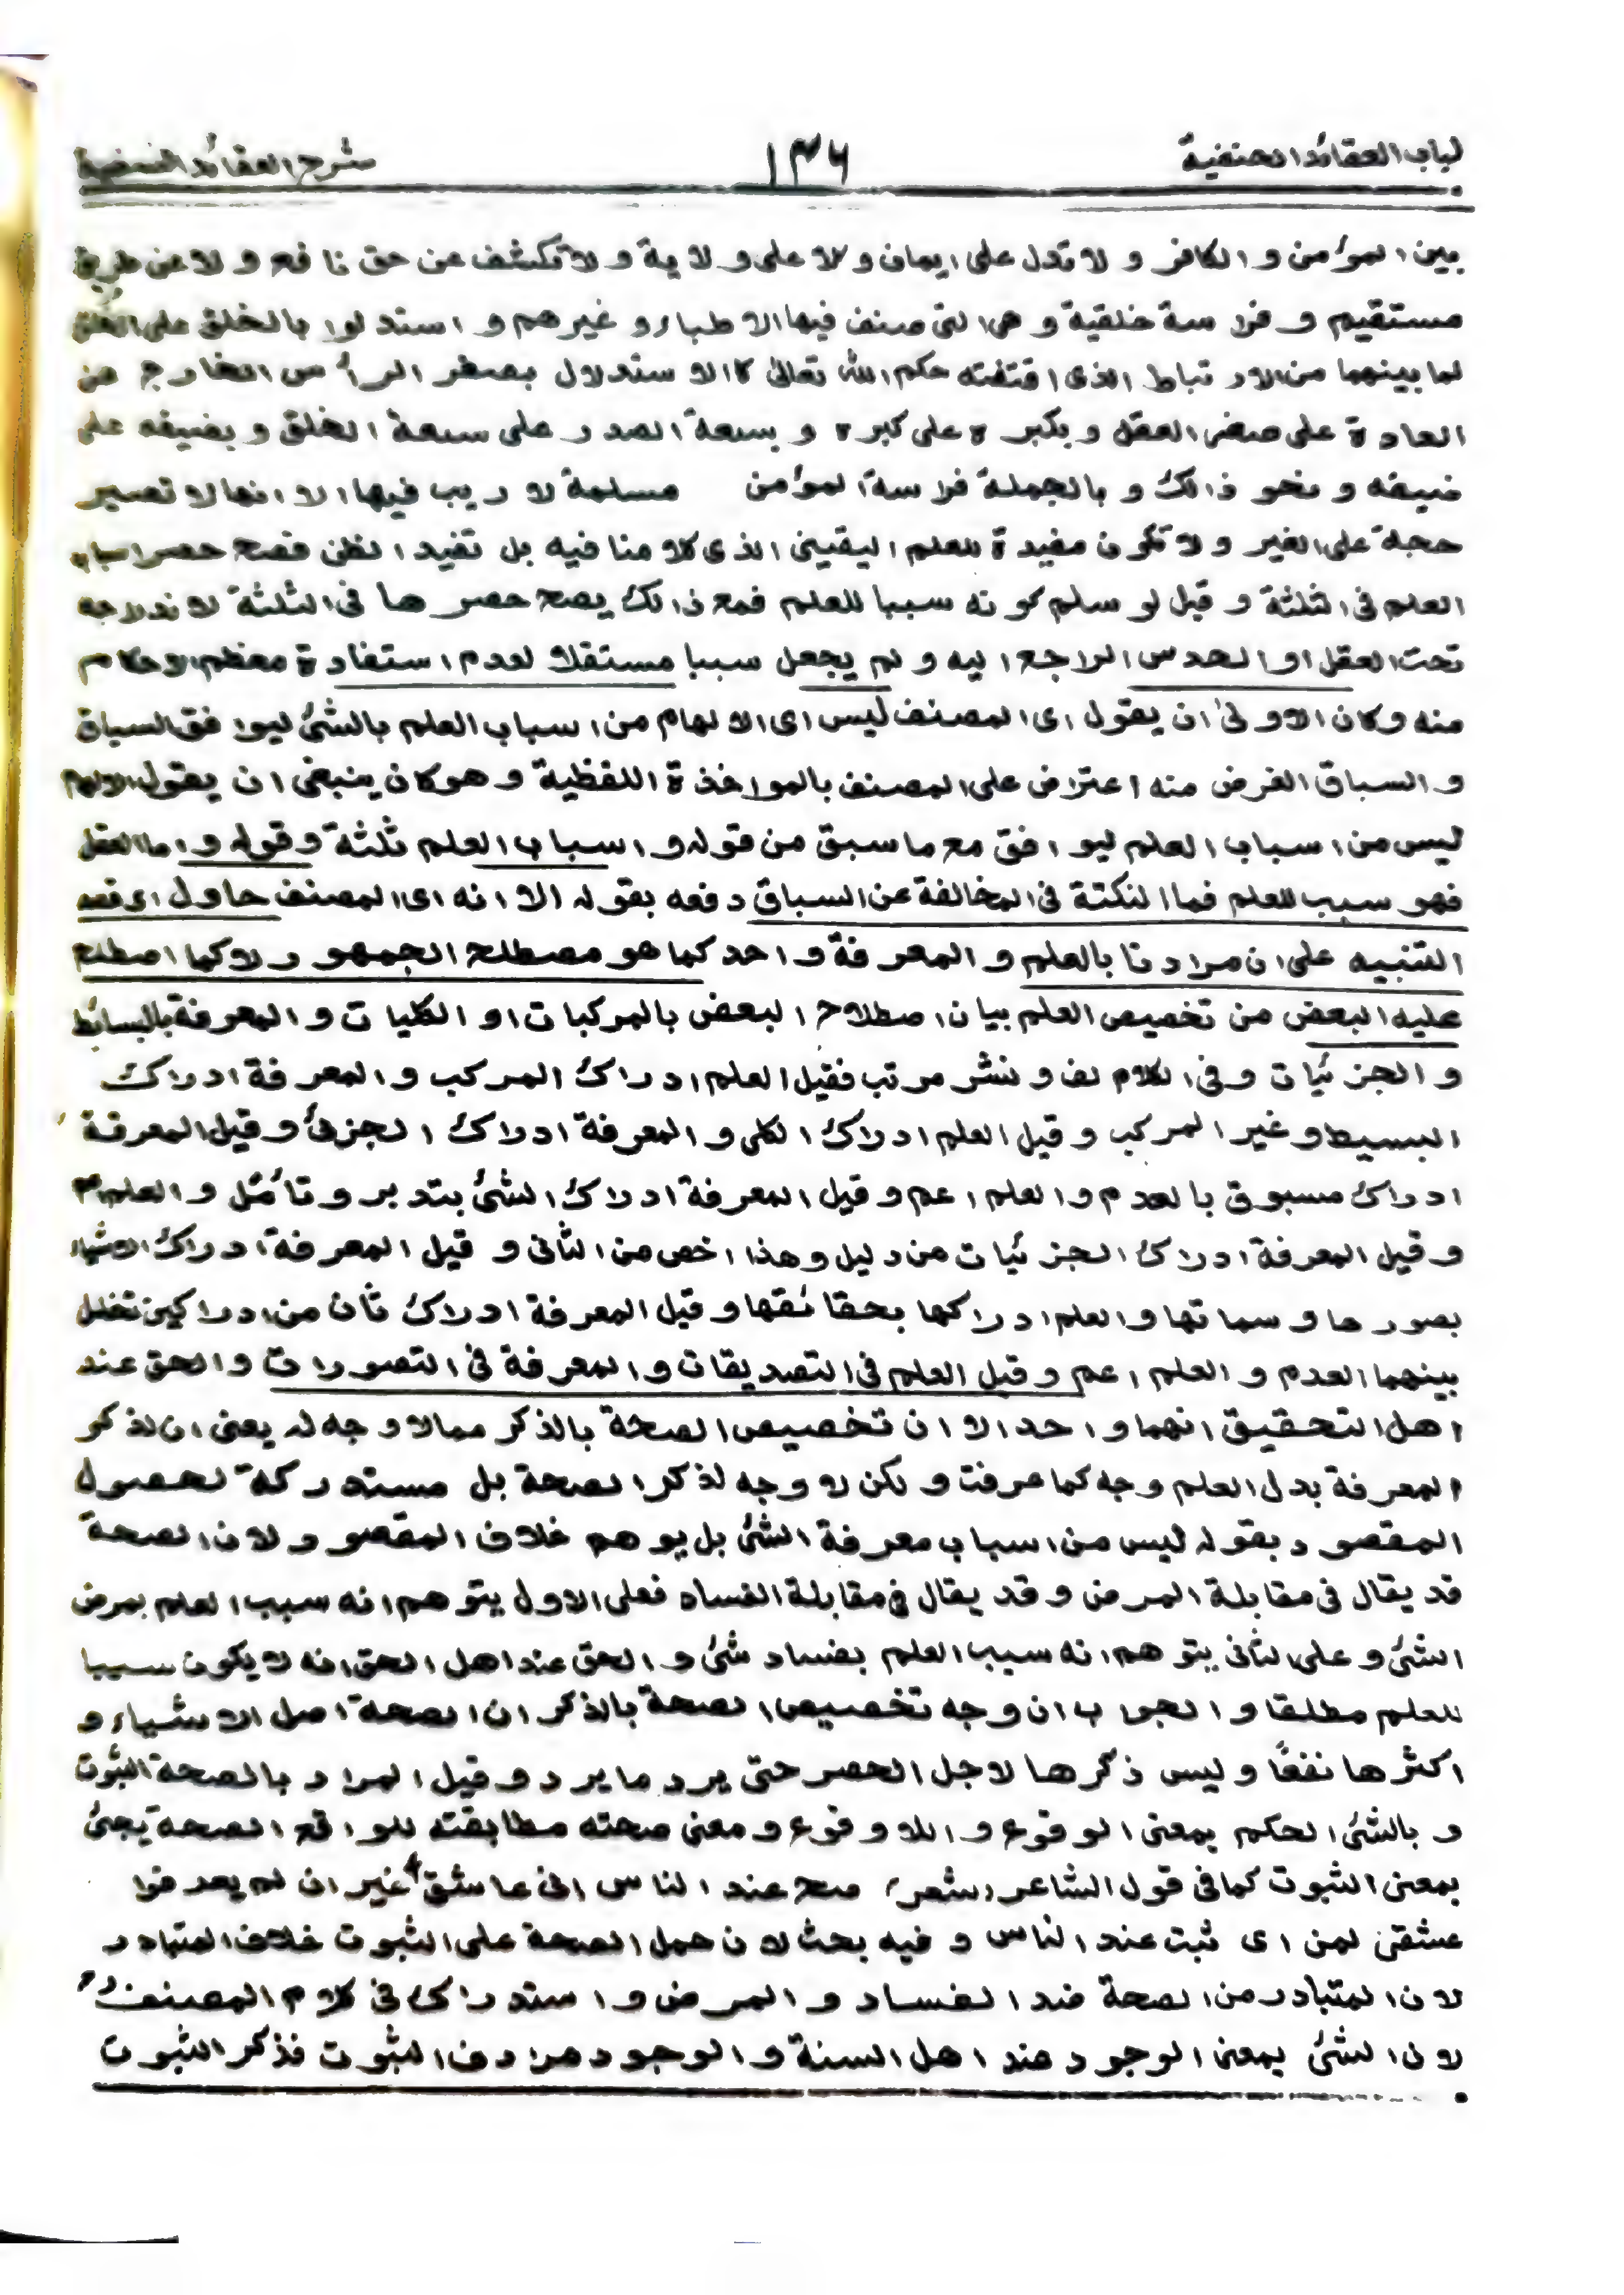 لباب العقائد الحنفية ۱۳۶ شرح العقائد النسفية
بين المؤمن و الكافر و لا تدل على ايمان و لا على ولاية و لا تكشف عن حق نافع و لا عن طريق
مستقيم و فراسة خلقية و هى التى صنف فيها الاطباء و غيرهم و استدلوا بالخلق على الخلق
لما بينهما من الارتباط الذى اقتضته حكم الله تعالىٰ كالاستدلال بصغر الرأس الخارج من
العادة على صغر العقل و بكبره على كبره و بسعة الصدر على سعة الخلق و بضيقه على
ضيقه و نحو ذالك و بالجملة فراسة المؤمن مسلمة لا ريب فيها الا انها لا تصير
حجة على الغير و لا تكون مفيدة للعلم اليقينى الذى كلامنا فيه بل تفيد الظن فصح حصر اسباب
العلم فى الثلثة و قيل لو سلم كونه سببا للعلم فمع ذالك يصح حصرها فى الثلثة لاندراجه
تحت العقل او الحدس الراجع اليه و لم يجعل سببا مستقلا لعدم استفادة معظم الاحكام
منه و كان الاولىٰ ان يقول اى المصنف ليس اى الالهام من اسباب العلم بالشئ ليوافق السباق
و السباق الغرض منه اعتراض على المصنف بالمواخذة اللفظية و هو كان ينبغى ان يقول الالهام
ليس من اسباب العلم ليوافق مع ما سبق من قوله و اسباب العلم ثلثة و قوله و اما العقل
فهو سبب للعلم فما النكتة فى المخالفة عن السباق دفعه بقوله الا انه اى المصنف حاول اى قصد
التنبيه على ان مرادنا بالعلم و المعرفة واحد كما هو مصطلح الجمهور لا كما اصطلح
عليه البعض من تخصيص العلم بيان اصطلاح البعض بالمركبات او الكليات و المعرفة بالبسائط
و الجزئيات و فى الكلام لف و نشر مرتب فقيل العلم ادراك المركب و المعرفة ادراك
البسيط و غير المركب و قيل العلم ادراك الكلى و المعرفة ادراك الجزئ و قيل المعرفة
ادراك مسبوق بالعدم و العلم اعم و قيل المعرفة ادراك الشئ بتدبر و تأمّل و العلم اعم
و قيل المعرفة ادراك الجزئيات من دليل و هذا اخص من الثانى و قيل المعرفة ادراك الاشياء
بصورها و سماتها و العلم ادراكها بحقائقها و قيل المعرفة ادراك ثان من ادراكين تخلل
بينهما العدم و العلم اعم و قيل العلم فى التصديقات و المعرفة فى التصورات و الحق عند
اهل التحقيق انهما واحد الا ان تخصيص الصحة بالذكر مما لا وجه له يعنى ان لذكر
المعرفة بدل العلم وجه كما عرفت و لكن لا وجه لذكر الصحة بل مستدركة لحصول
المقصود بقوله ليس من اسباب معرفة الشئ بل يوهم خلاف المقصود لان الصحة
قد يقال فى مقابلة المرض و قد يقال فى مقابلة الفساد فعلى الاول يتوهم انه سبب العلم بمرض
الشئ و على الثانى يتوهم انه سبب العلم بفساد شئ و الحق عند اهل الحق انه لا يكون سببا
للعلم مطلقا و الجواب ان وجه تخصيص الصحة بالذكر ان الصحة اصل الاشياء و
اكثرها نفعًا و ليس ذكرها لاجل الحصر حتى يرد ما يرد و قيل المراد بالصحة الثبوت
و بالشئ الحكم بمعنى الوقوع و اللاوقوع و معنى صحته مطابقته للواقع الصحة يجئ
بمعنى الثبوت كما فى قول الشاعر (شعر) صح عند الناس انى عاشق غير ان لم يعرفوا
عشقى لمن اى ثبت عند الناس و فيه بحث لان حمل الصحة على الثبوت خلاف المتبادر
لان المتبادر من الصحة ضد الفساد و المرض و استدراك فى كلام المصنف
لان الشئ بمعنى الوجود عند اهل السنة و الوجود مرادف الثبوت فذكر الثبوت